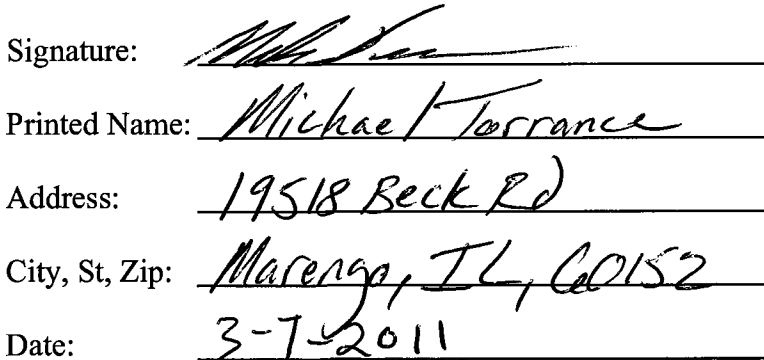 Signature:
Printed Name: Michael Torrance
Address: 19518 Beck Rd
City, St, Zip: Marengo, IL, 60152
Date: 3-7-2011